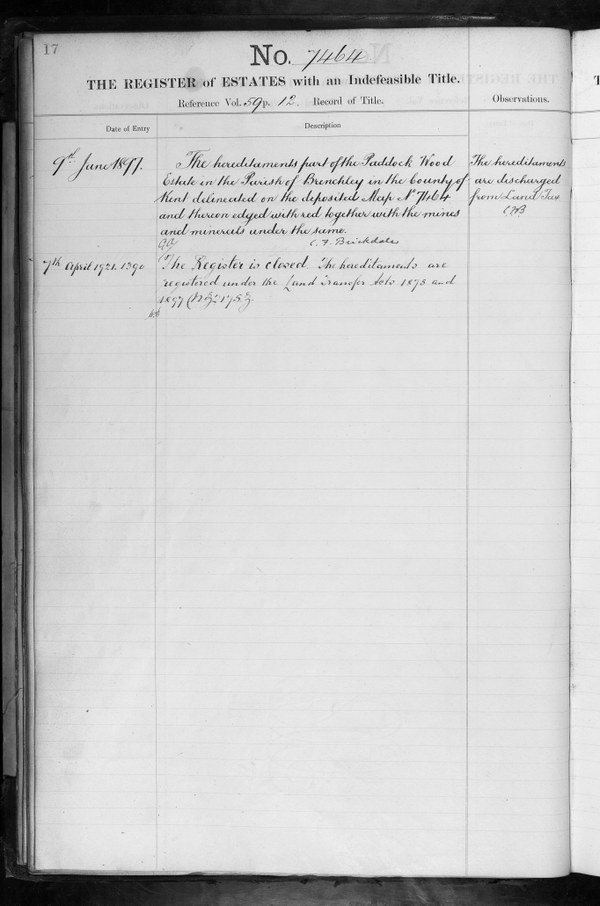 17
No. 7464
THE REGISTER of ESTATES with an Indefeasible Title.
Reference Vol. 59 p. 12. Record of Title.
Observations.
Date of Entry
Description
9th June 1897.
The hereditaments part of the Paddock Wood
Estate in the Parish of Brenchley in the County of
Kent delineated on the deposited Map No 7464
and thereon edged with red together with the mines
and minerals under the same.
C. F. Brickdale
The hereditaments
are discharged
from Land Tax
CFB
7th April 1921. 1390
The Register is closed The hereditaments are
registered under the Land Transfer Acts 1875 and
1897